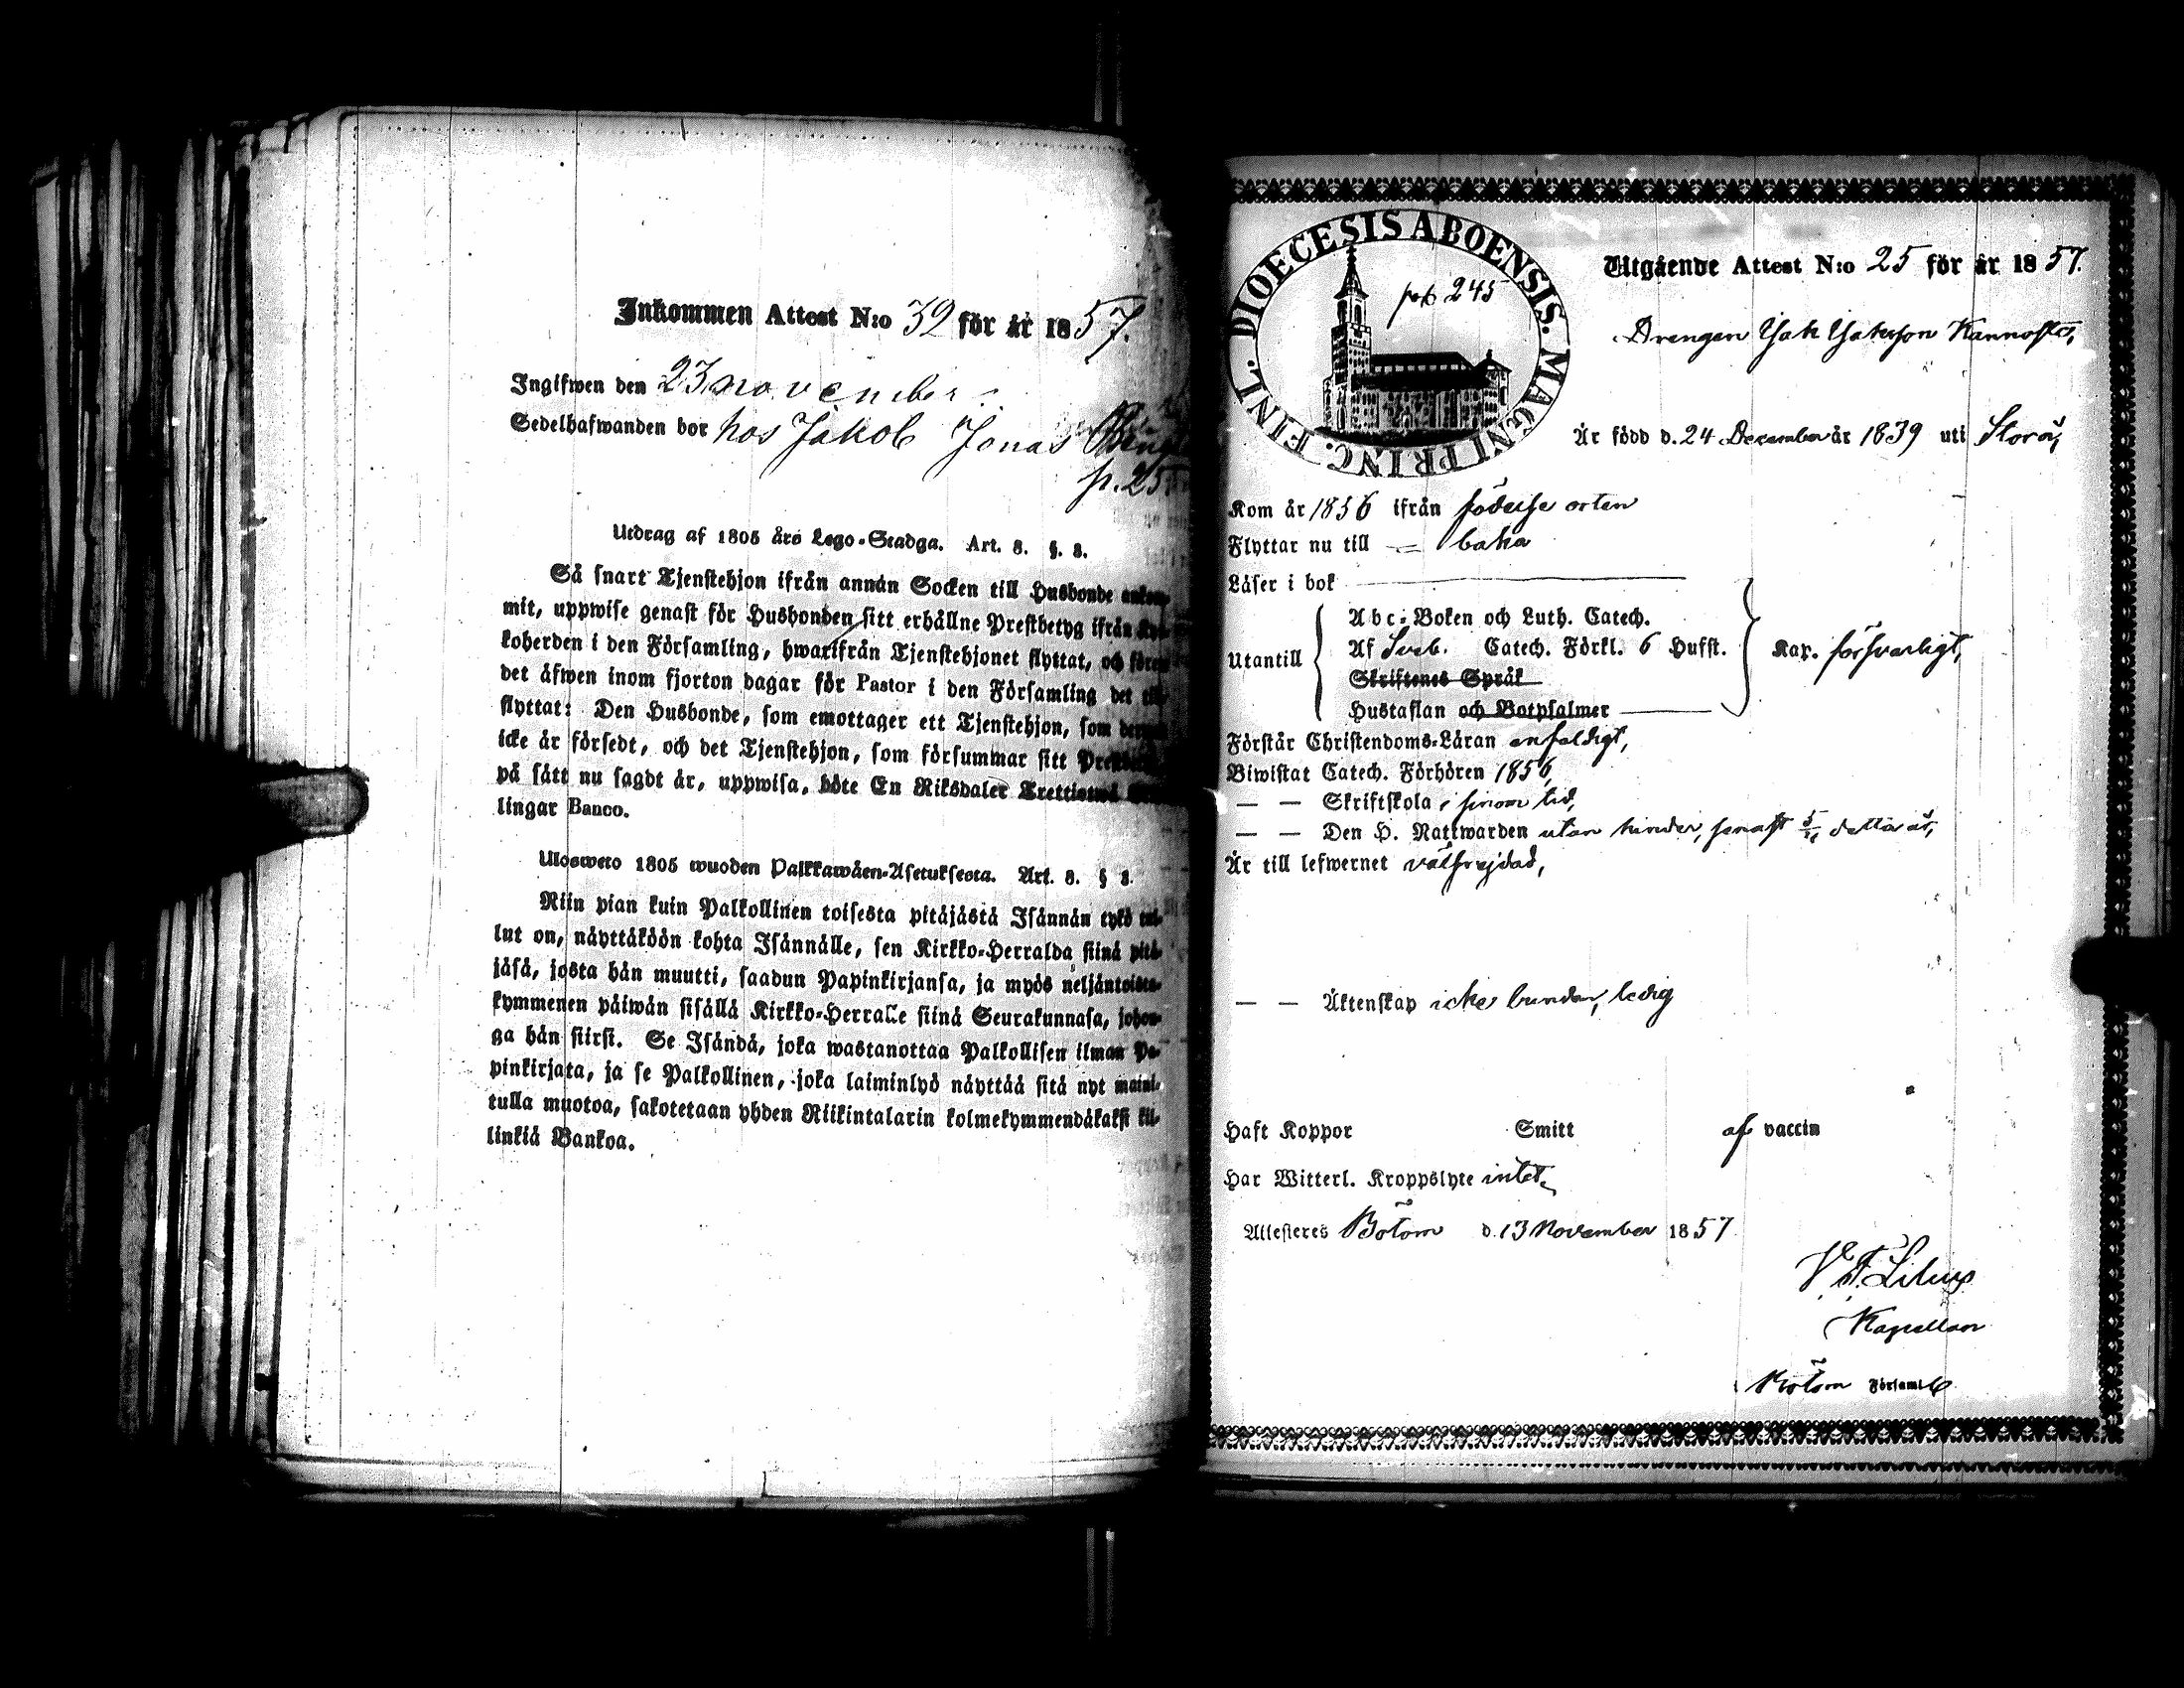 Inkommen Attest N:o 32 för år 1857.
Ingifwen den 23 november
Sedelhafwanden bor hos Jakob Jonas
p. 25
Utdrag af 1805 års Lego-Stadga. Art. 8. §. 8.
Så snart Tjenstehjon ifrån annan Socken till Husbonde
mit, uppwise genast för Husbonden sitt erhållne Prestbetyg ifrån
koherden i den Församling, hwarifrån Tjenstehjonet flyttat, och
det äfwen inom fjorton dagar för Pastor i den Församling det
flyttat: Den Husbonde, som emottager ett Tjenstehjon, som
icke är försedt, och det Tjenstehjon, som försummar sitt
på sätt nu sagdt är, uppwisa, böte En Riksdaler Trettiotwå
lingar Banco.
Ulosweto 1805 wuoden Palkkawäen-Asetuksesta. Art. 8. § 8.
Niin pian kuin Palkollinen toisesta pitäjästä Isännän tykö tul-
lut on, näyttäköön kohta Isännälle, sen Kirkko-Herralda siinä pitä-
jäsä, josta hän muutti, saadun Papinkirjansa, ja myös neljäntoista-
kymmenen päiwän sisällä Kirkko-Herralle siinä Seurakunnasa, johon-
ga hän siirsi. Se Isändä, joka wastanottaa Palkollisen ilman Pa-
pinkirjata, ja se Palkollinen, joka laiminlyö näyttää sitä nyt maini-
tulla muotoa, sakotetaan yhden Riikintalarin kolmekymmendäkaksi kil-
linkiä Bankoa.
FINL. DIOECESIS ABOENSIS. MAGNI PRINC.
245
Utgående Attest N:o 25 för år 1857.
Drengen Isak Isaksson
Är född d. 24 December år 1839 uti Storå,
Kom år 1856 ifrån födelse orten
Flyttar nu till = baka
Läser i bok
Utantill
Abc-Boken och Luth. Catech.
Af Sveb. Catech. Förkl. 6 Hufst.
Skriftenes Språk
Hustaflan och Botpsalmer
Kap. försvarligt,
Förstår Christendoms-Läran enfaldigt,
Biwistat Catech. Förhören 1856,
— — Skriftskola i sinom tid,
— — Den H. Nattwarden utan hinder, senast detta år,
Är till lefwernet välfrejdad,
— — Äktenskap icke bunden, ledig
Haft Koppor Smitt af vaccin
Har Witterl. Kroppslyte intet.
Attesteres Bötom d. 13 November 1857
Kapellan
Bötom Församl